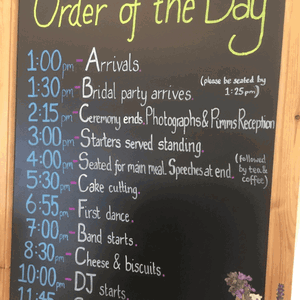 Order of the Day
1:00pm - Arrivals.
1:30pm - Bridal party arrives. (please be seated by 1:25pm)
2:15pm - Ceremony ends. Photographs & Pimms Reception
3:00pm - Starters served standing.
4:00pm - Seated for main meal. Speeches at end. (followed by tea & coffee)
5:30pm - Cake cutting.
6:55pm - First dance.
7:00pm - Band starts.
8:30pm - Cheese & biscuits.
10:00pm - DJ starts.
11:45